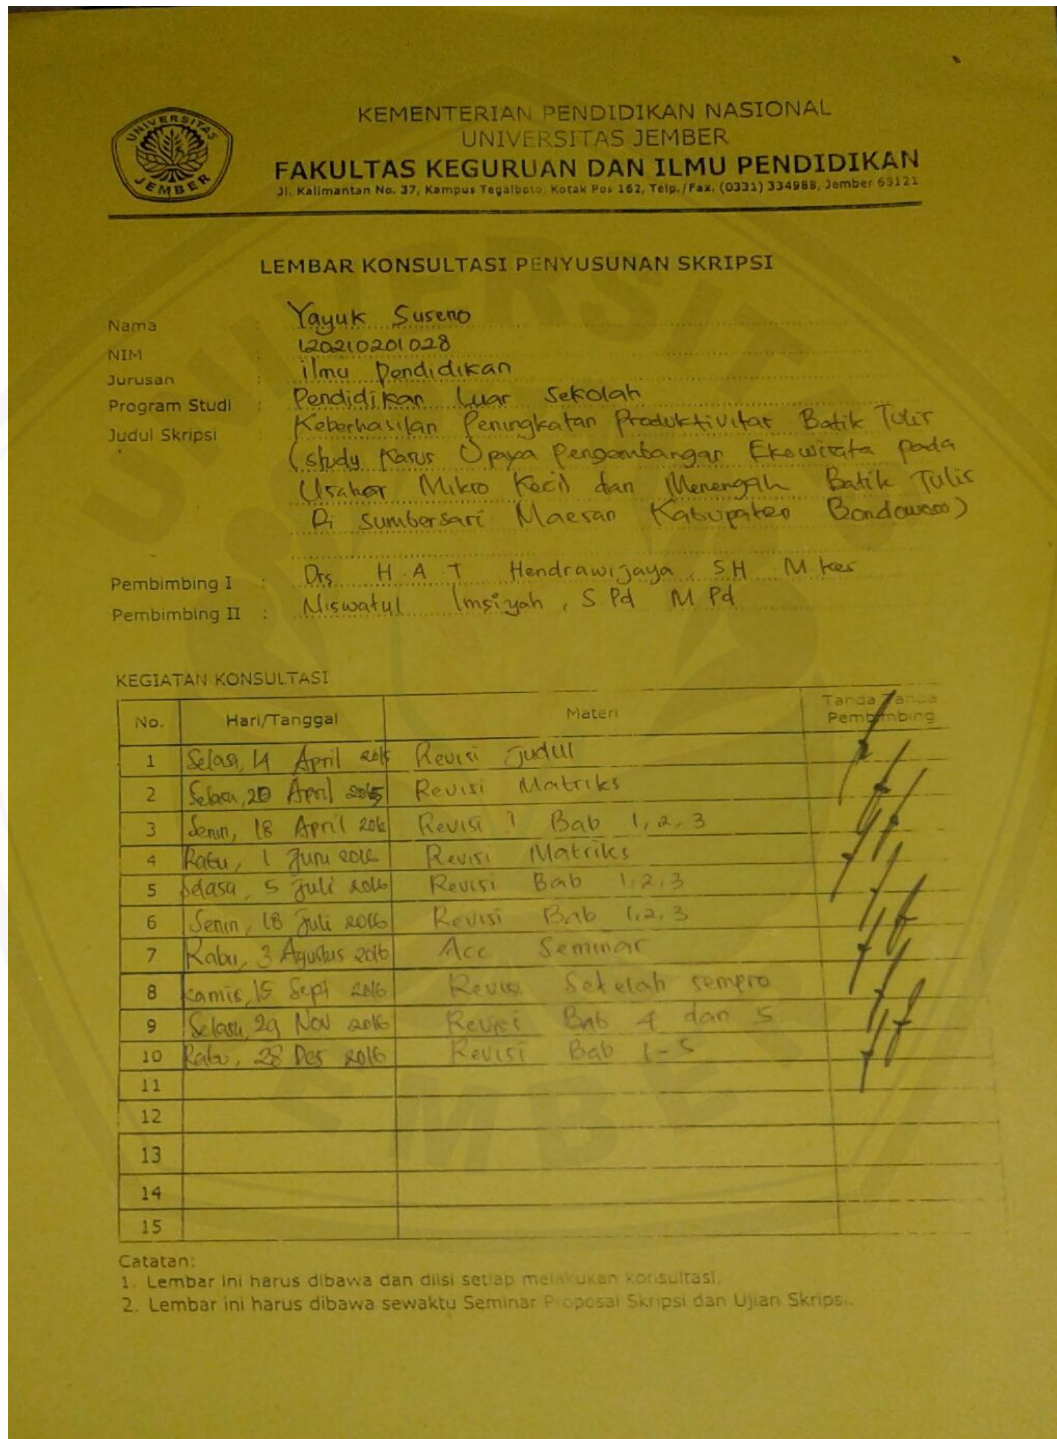 UNIVERSITAS
JEMBER
KEMENTERIAN PENDIDIKAN NASIONAL
UNIVERSITAS JEMBER
FAKULTAS KEGURUAN DAN ILMU PENDIDIKAN
Jl. Kalimantan No. 37, Kampus Tegalboto, Kotak Pos 162, Telp./Fax. (0331) 334988, Jember 68121
LEMBAR KONSULTASI PENYUSUNAN SKRIPSI
Nama : Yayuk Suseno
NIM : 120210201028
Jurusan : ilmu Pendidikan
Program Studi : Pendidikan Luar Sekolah
Judul Skripsi : Keberhasilan Peningkatan Produktivitas Batik Tulis
(study Kasus Upaya Pengembangan Ekowisata pada
Usaha Mikro Kecil dan Menengah Batik Tulis
Di Sumbersari Maesan Kabupaten Bondowoso)
Pembimbing I : Drs. H. A. T Hendrawijaya, SH M Kes
Pembimbing II : Niswatul Imsiyah, S Pd M Pd
KEGIATAN KONSULTASI
No. Hari/Tanggal Materi Tanda Tanda Pembimbing
1 Selasa, 14 April 2015 Revisi Judul
2 Selasa, 20 April 2015 Revisi Matriks
3 Senin, 18 April 2016 Revisi Bab 1, 2, 3
4 Rabu, 1 Juni 2016 Revisi Matriks
5 Selasa, 5 Juli 2016 Revisi Bab 1, 2, 3
6 Senin, 18 Juli 2016 Revisi Bab 1, 2, 3
7 Rabu, 3 Agustus 2016 Acc Seminar
8 Kamis, 15 Sept 2016 Revisi Setelah sempro
9 Selasa, 29 Nov 2016 Revisi Bab 4 dan 5
10 Rabu, 28 Des 2016 Revisi Bab 1-5
11
12
13
14
15
Catatan:
1. Lembar ini harus dibawa dan diisi setiap melakukan konsultasi.
2. Lembar ini harus dibawa sewaktu Seminar Proposal Skripsi dan Ujian Skripsi.